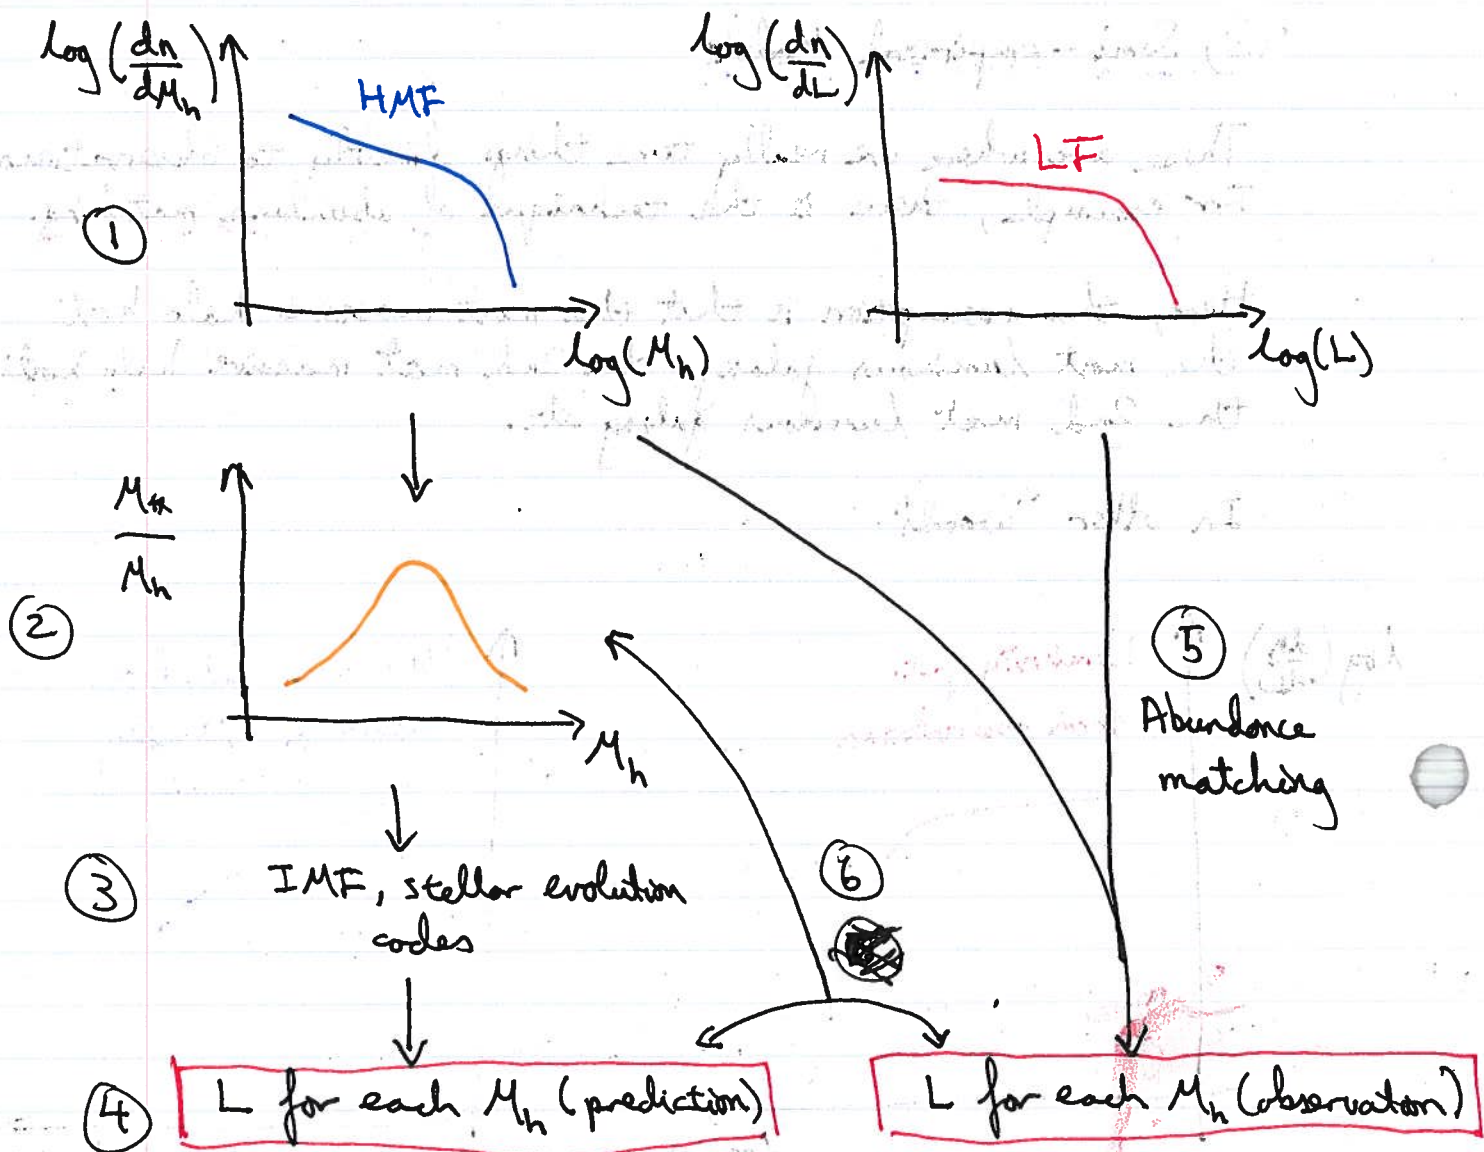 log(dn/dM_h)
HMF
log(dn/dL)
LF
①
log(M_h)
log(L)
M_*/M_h
②
M_h
⑤
Abundance
matching
③
IMF, stellar evolution
codes
⑥
④
L for each M_h (prediction)
L for each M_h (observation)